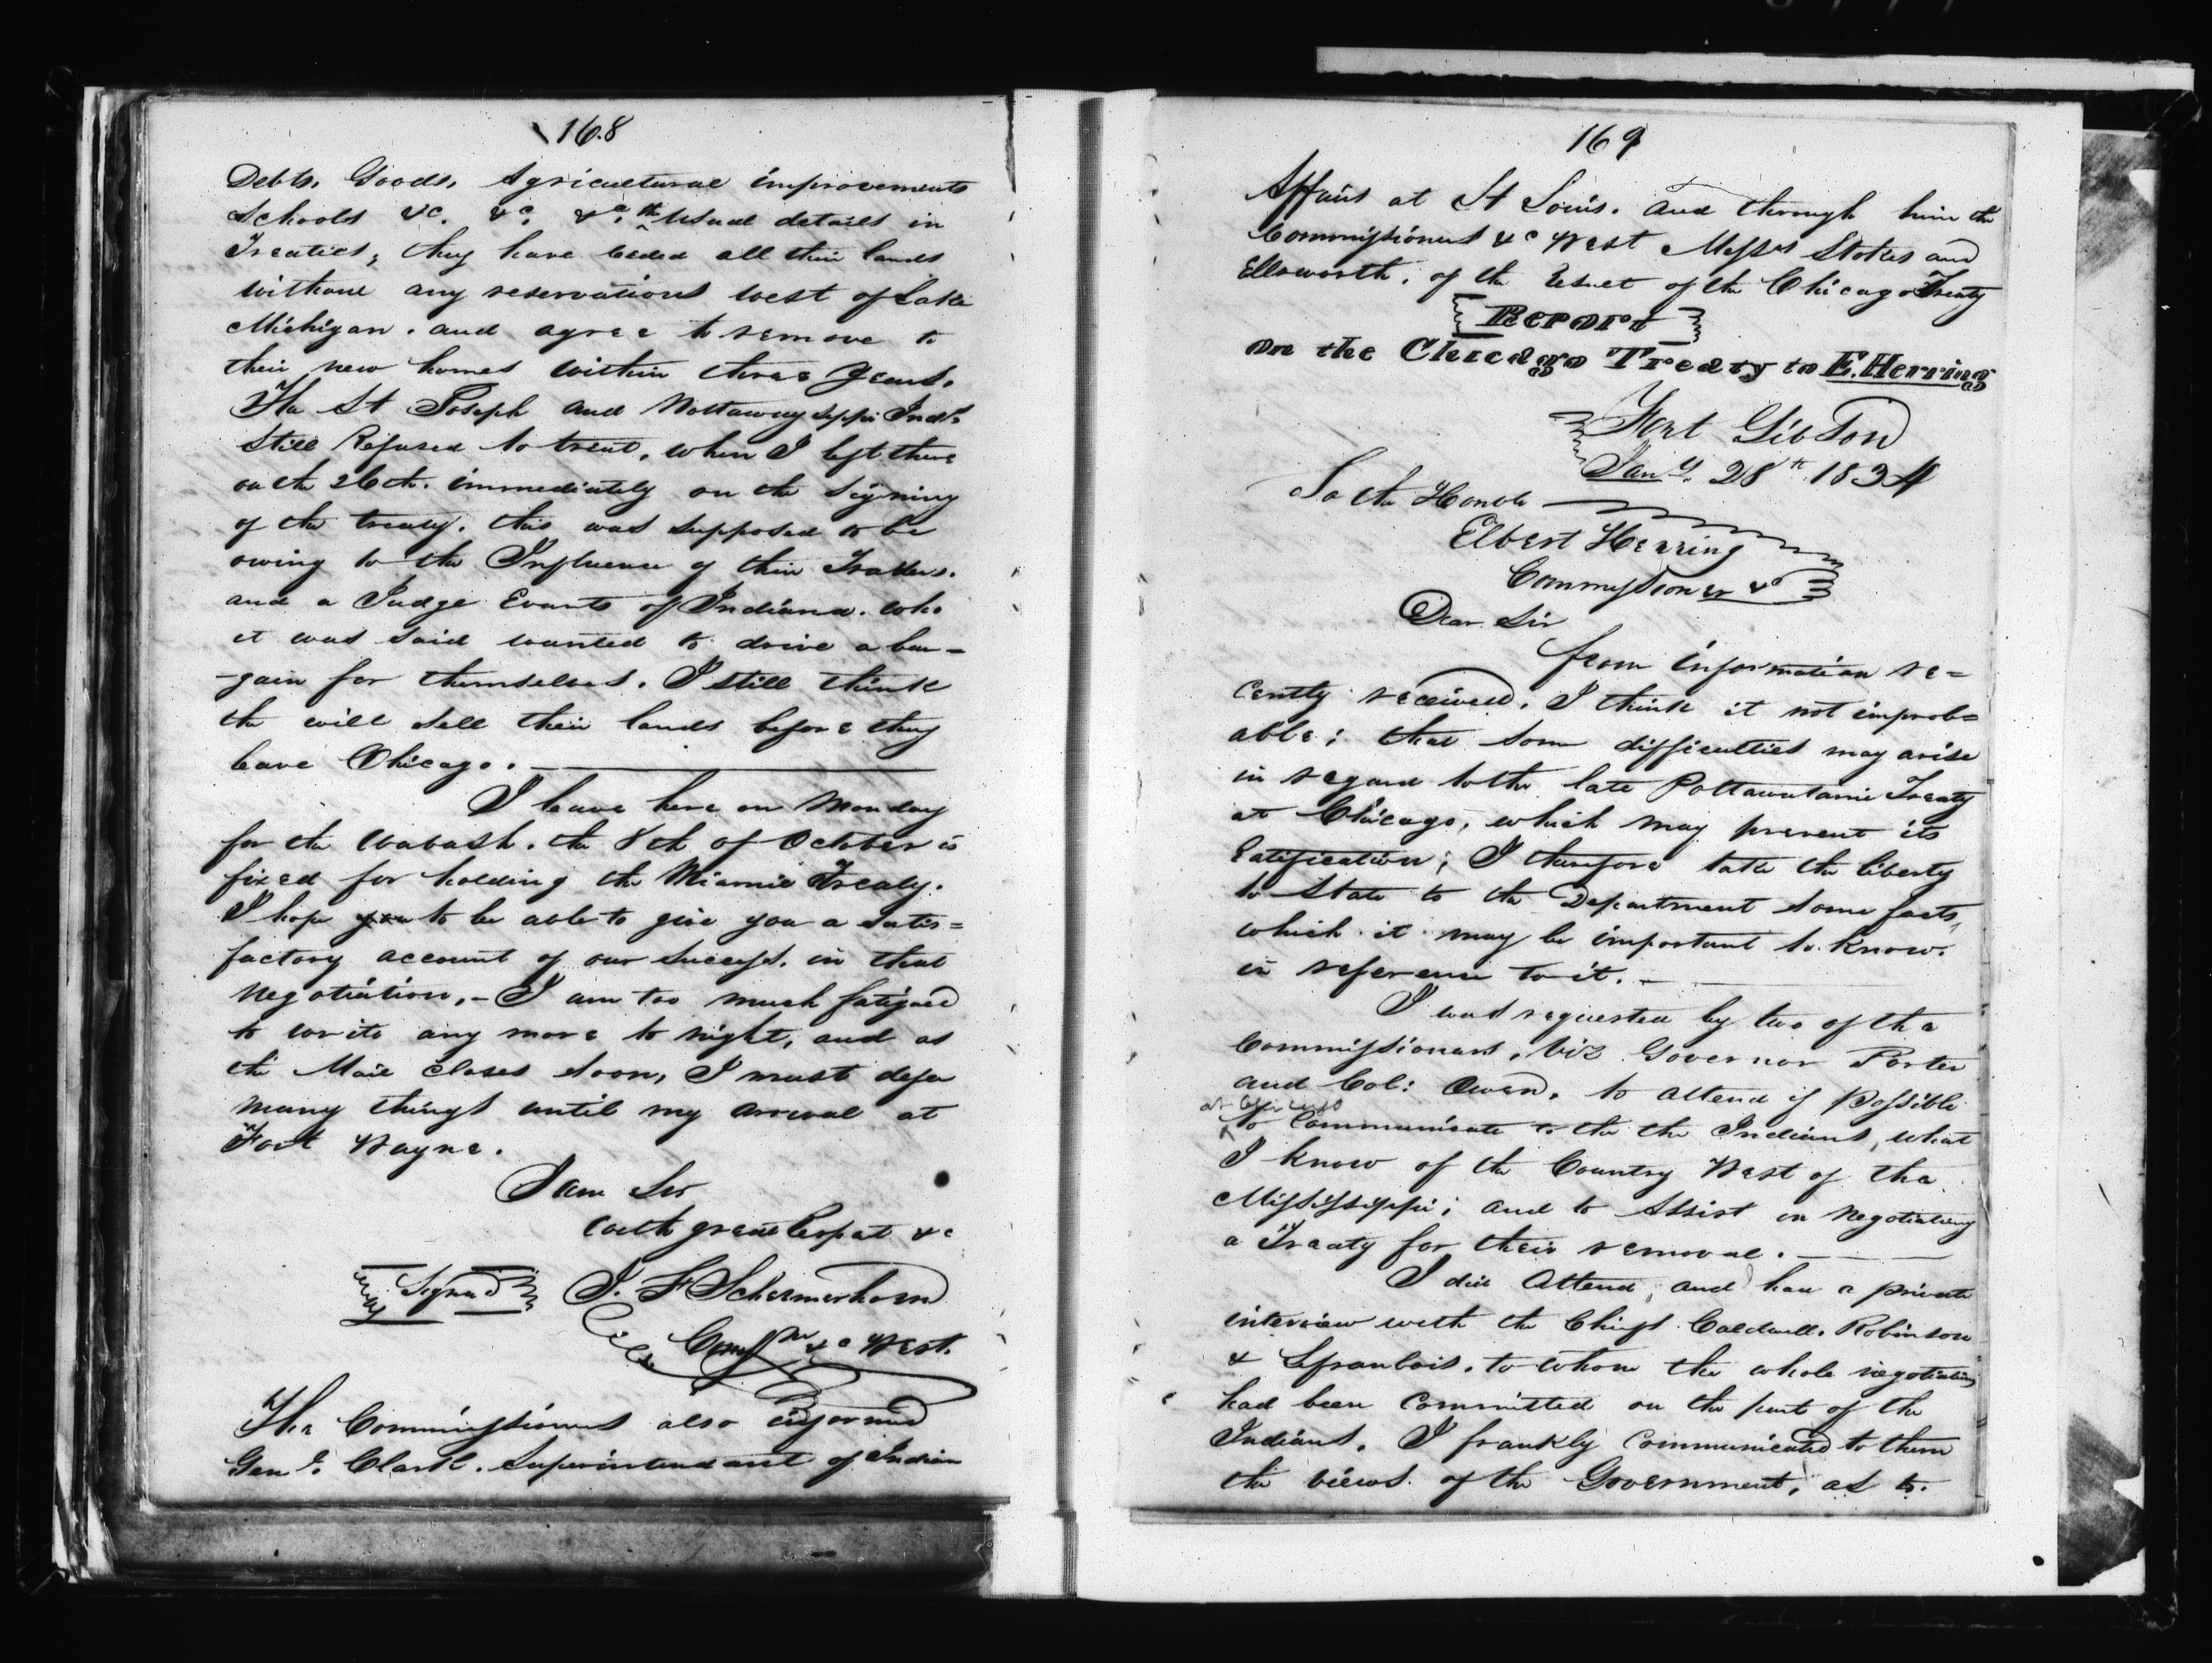 168
Debts, Goods, Agricultural improvements
Schools &c. &c. &c. the usual details in
Treaties, they have ceded all their lands
without any reservations west of Lake
Michigan. and agree to remove to
their new homes within three years.
The St Joseph and Nottaway seppi Inds
still Refused to treat, when I left there
on the 26th. immediately on the signing
of the treaty. this was supposed to be
owing to the Influence of their Traders.
and a Judge Evarts of Indiana. who
it was said wanted to drive a bar-
-gain for themselves. I still think
the will sell their lands before they
leave Chicago.
I leave here on Monday
for the Wabash. the 8th of October is
fixed for holding the Miamie Treaty.
I hope you to be able to give you a satis=
factory account of our success. in that
negotiation.- I am too much fatigued
to write any more to night, and as
the Mail closes soon, I must defer
many things until my arrival at
Fort Wayne.
I am Sir
with great Respect &c
Signed J. F Schermerhorn
Comssr &c West.
The Commissioners also informed
Genl. Clark. Superintendant of Indian
169
Affairs at St Louis. and through him the
Commissioners &c West Messrs Stokes and
Ellsworth, of the Result of the Chicago Treaty
Report
on the Chicago Treaty to E. Herring
Fort Gibson
Jany. 28th 1834
To the Honble
Elbert Herring
Commissioner &c
Dear Sir
from information re=
cently received, I think it not improb=
able; that some difficulties may arise
in regard to the late Pottawatamie Treaty
at Chicago, which may prevent its
Ratification; I therefore take the liberty
to State to the Department some facts,
which it may be important to know.
in reference to it.-
I was requested by two of the
Commissioners, viz Governor Porter
and Col: Owen, to attend if possible
at Chicago
to Communicate to the the Indians, what
I know of the Country West of the
Mississippi; and to Assist in negotiating
a Treaty for their removal.
I did Attend, and had a private
interview with the Chiefs Caldwell. Robinson
& Lefranbois. to whom the whole negotiation
had been Committed on the part of the
Indians. I frankly Communicated to them
the views of the Government, as to.